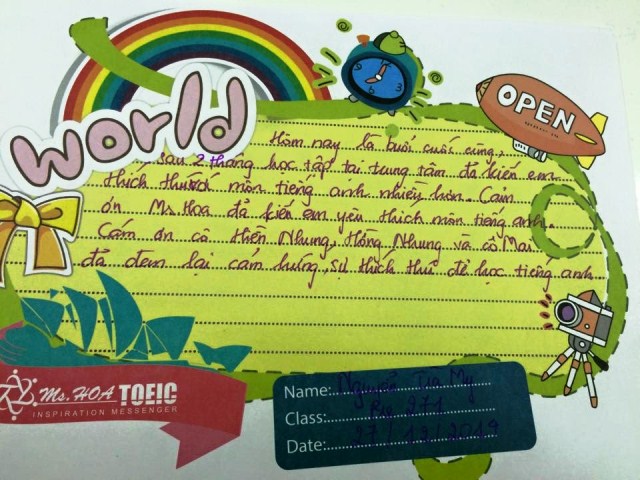 world
OPEN
Hôm nay là buổi cuối cùng,
sau 2 tháng học tập tại trung tâm đã kiến em
thích thú với môn tiếng anh nhiều hơn. Cảm
ơn Ms. Hoa đã kiến em yêu thích môn tiếng anh.
Cảm ơn cô Hiền Nhung, Hồng Nhung và cô Mai
đã đem lại cảm hứng, sự thích thú để học tiếng anh
Ms. HOA TOEIC
INSPIRATION MESSENGER
Name: Nguyễn Trà My
Class: 271
Date: 27/12/2019